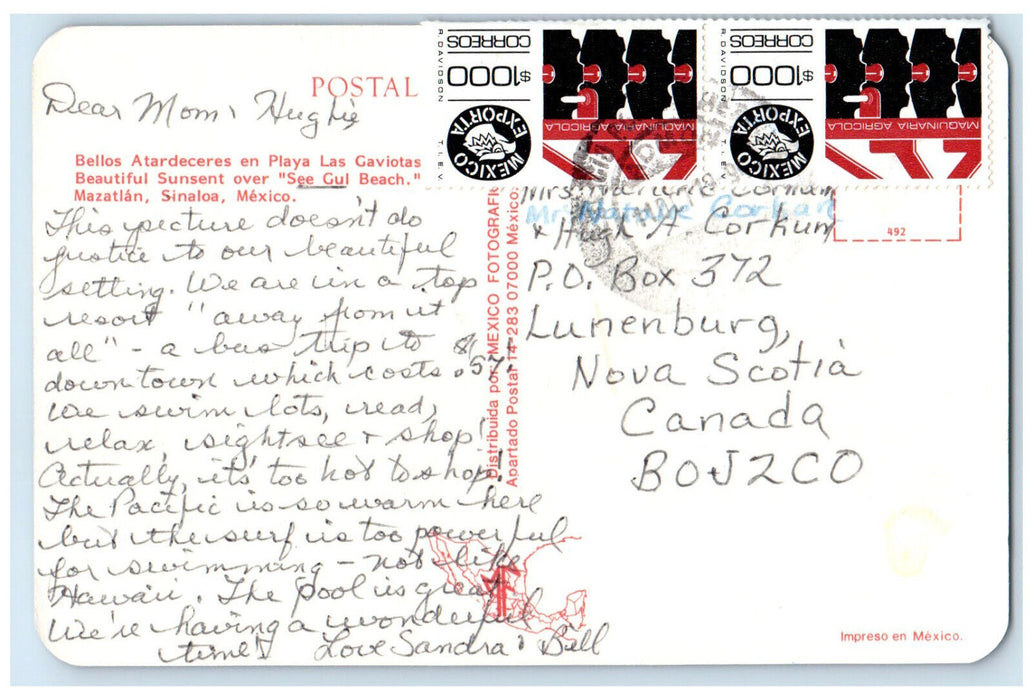 POSTAL
Dear Mom & Hughie
Bellos Atardeceres en Playa Las Gaviotas
Beautiful Sunsent over "See Gul Beach."
Mazatlán, Sinaloa, México.
This picture doesn't do
justice to our beautiful
setting. We are in a top
resort "away from it
all" - a bus trip to
downtown which costs .57¢!
We swim lots, read,
relax, sightsee & shop!
Actually, it's too hot to shop!
The Pacific is so warm here
but the surf is too powerful
for swimming - not like
Hawaii. The pool is great
We're having a wonderful
time! Love Sandra & Bill
Distribuida por: MEXICO FOTOGRAFIC
Apartado Postal 14-283 07000 México.
R. DAVIDSON
CORREOS
$1000
MEXICO EXPORTA
T.I.E.V.
MAQUINARIA AGRICOLA
R. DAVIDSON
CORREOS
$1000
MEXICO EXPORTA
T.I.E.V.
MAQUINARIA AGRICOLA
492
Mrs. Corhum
Mrs Natalie Corhum
& Hugh A. Corhum
P.O. Box 372
Lunenburg,
Nova Scotia
Canada
BOJ2CO
Impreso en México.